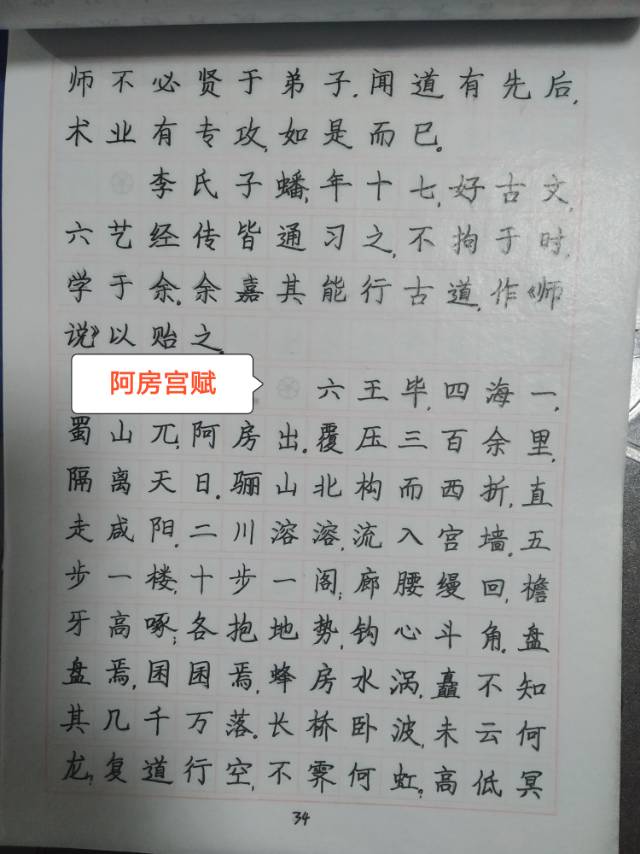 师不必贤于弟子,闻道有先后,
术业有专攻,如是而已。
李氏子蟠,年十七,好古文,
六艺经传皆通习之,不拘于时,
学于余。余嘉其能行古道,作《师
说》以贻之。
阿房宫赋
六王毕,四海一,
蜀山兀,阿房出。覆压三百余里,
隔离天日。骊山北构而西折,直
走咸阳。二川溶溶,流入宫墙。五
步一楼,十步一阁;廊腰缦回,檐
牙高啄;各抱地势,钩心斗角。盘
盘焉,囷囷焉,蜂房水涡,矗不知
其几千万落。长桥卧波,未云何
龙?复道行空,不霁何虹?高低冥
34